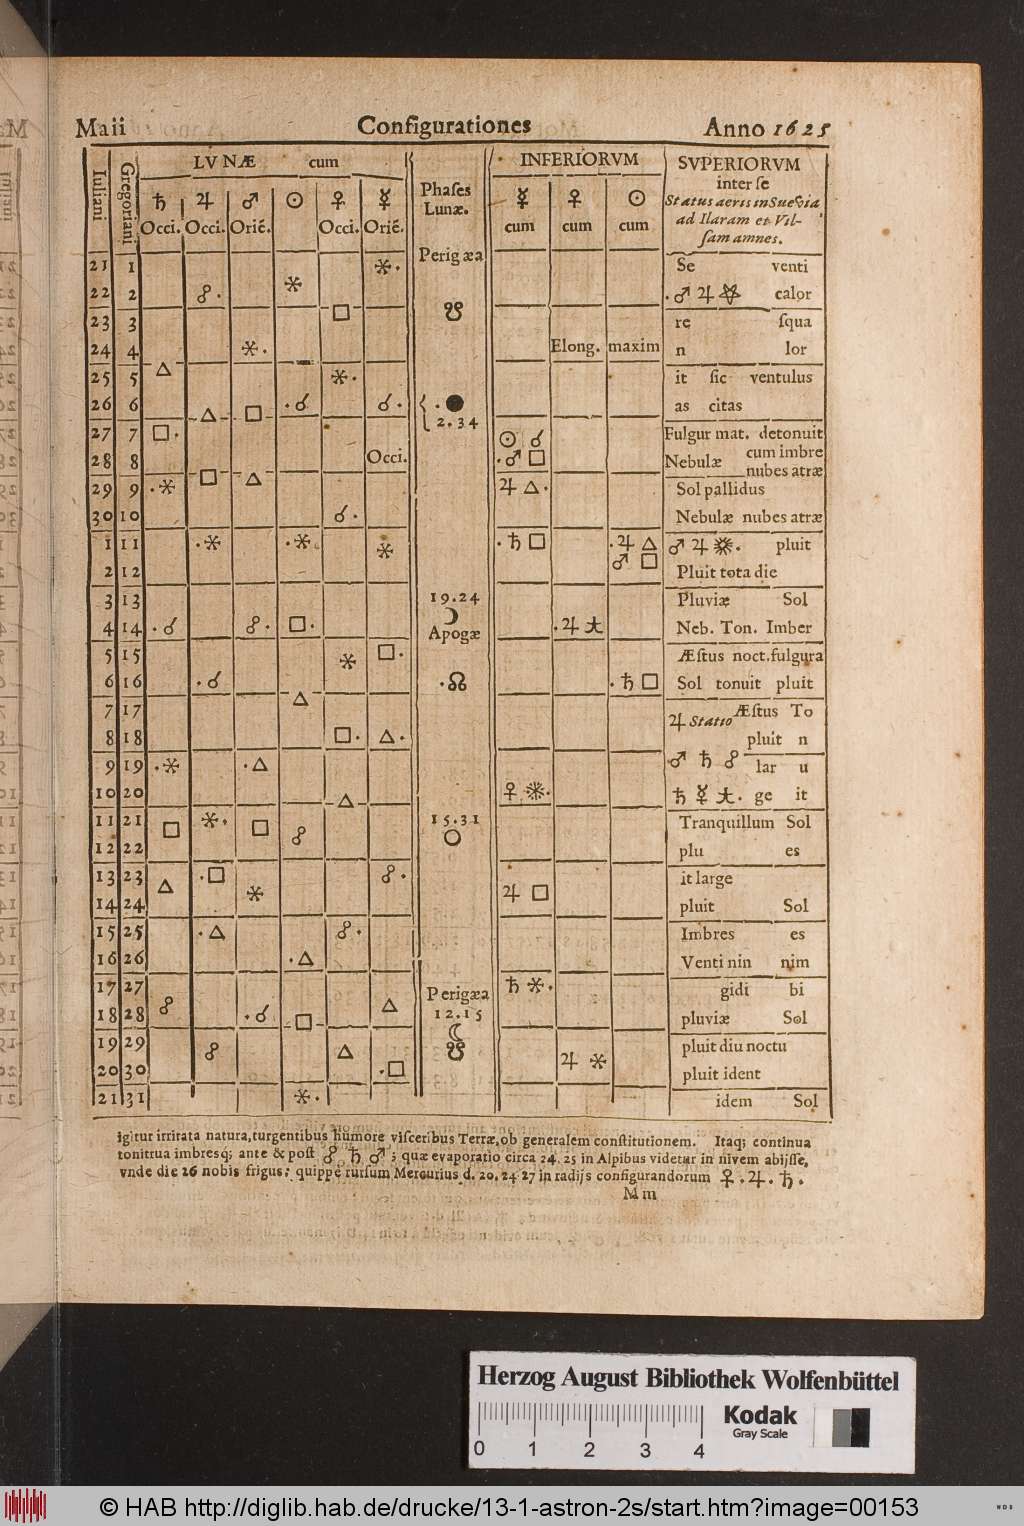 Maii Configurationes Anno 1625
Iuliani Gregoriani LVNÆ cum Phases Lunæ. INFERIORVM SVPERIORVM
inter se
Status aeris in Suevia
ad Ilaram et Vil-
sam amnes.
♄ ♃ ♂ ☉ ♀ ☿ ☿ ♀ ☉
Occi. Occi. Orié. Occi. Orié. cum cum cum
Perigæa
21 1 ⚹. Se venti
22 2 ☍. ⚹ ☋ .♂ ♃ calor
23 3 □ re squa
24 4 ⚹. Elong. maxim n lor
25 5 △ ⚹. it sic ventulus
26 6 △ □ .☌ ☌. .● as citas
2.34
27 7 □. ☉ ☌ Fulgur mat. detonuit
28 8 Occi. .♂ □ Nebulæ cum imbre
nubes atræ
29 9 .⚹ □ △ ♃ △. Sol pallidus
30 10 ☌. Nebulæ nubes atræ
1 11 .⚹ .⚹ ⚹ .♄ □ .♃ △ ♂ ♃ . pluit
2 12 ♂ □ Pluit tota die
3 13 19.24 Pluviæ Sol
4 14 .☌ ☍. □. ☽ .♃ Neb. Ton. Imber
Apogæ
5 15 ⚹ □. Æstus noct. fulgura
6 16 .☌ .☊ .♄ □ Sol tonuit pluit
7 17 △ ♃ Statio Æstus To
8 18 □. △. pluit n
9 19 .⚹ .△ .♂ ♄ ☍ lar u
10 20 △ ♀ . ♄ ☿ . ge it
11 21 □ ⚹. □ ☍ 15.31 Tranquillum Sol
12 22 ○ plu es
13 23 △ .□ ⚹ ☍. it large
14 24 ♃ □ pluit Sol
15 25 .△ ☍. Imbres es
16 26 .△ Venti nin nim
17 27 Perigæa ♄ ⚹. gidi bi
18 28 ☍ .☌ □ △ 12.15 pluviæ Sol
☾
19 29 ☍ △ ☋ ♃ ⚹ pluit diu noctu
20 30 .□ pluit ident
21 31 ⚹. idem Sol
igitur irritata natura, turgentibus humore visceribus Terræ, ob generalem constitutionem. Itaq; continua
tonitrua imbresq; ante & post ☍ ♄ ♂; quæ evaporatio circa 24. 25 in Alpibus videtur in nivem abijsse,
vnde die 26 nobis frigus: quippe rursum Mercurius d. 20. 24 27 in radijs configurandorum ♀. ♃. ♄.
Mm
Herzog August Bibliothek Wolfenbüttel
Kodak
Gray Scale
0 1 2 3 4
© HAB http://diglib.hab.de/drucke/13-1-astron-2s/start.htm?image=00153